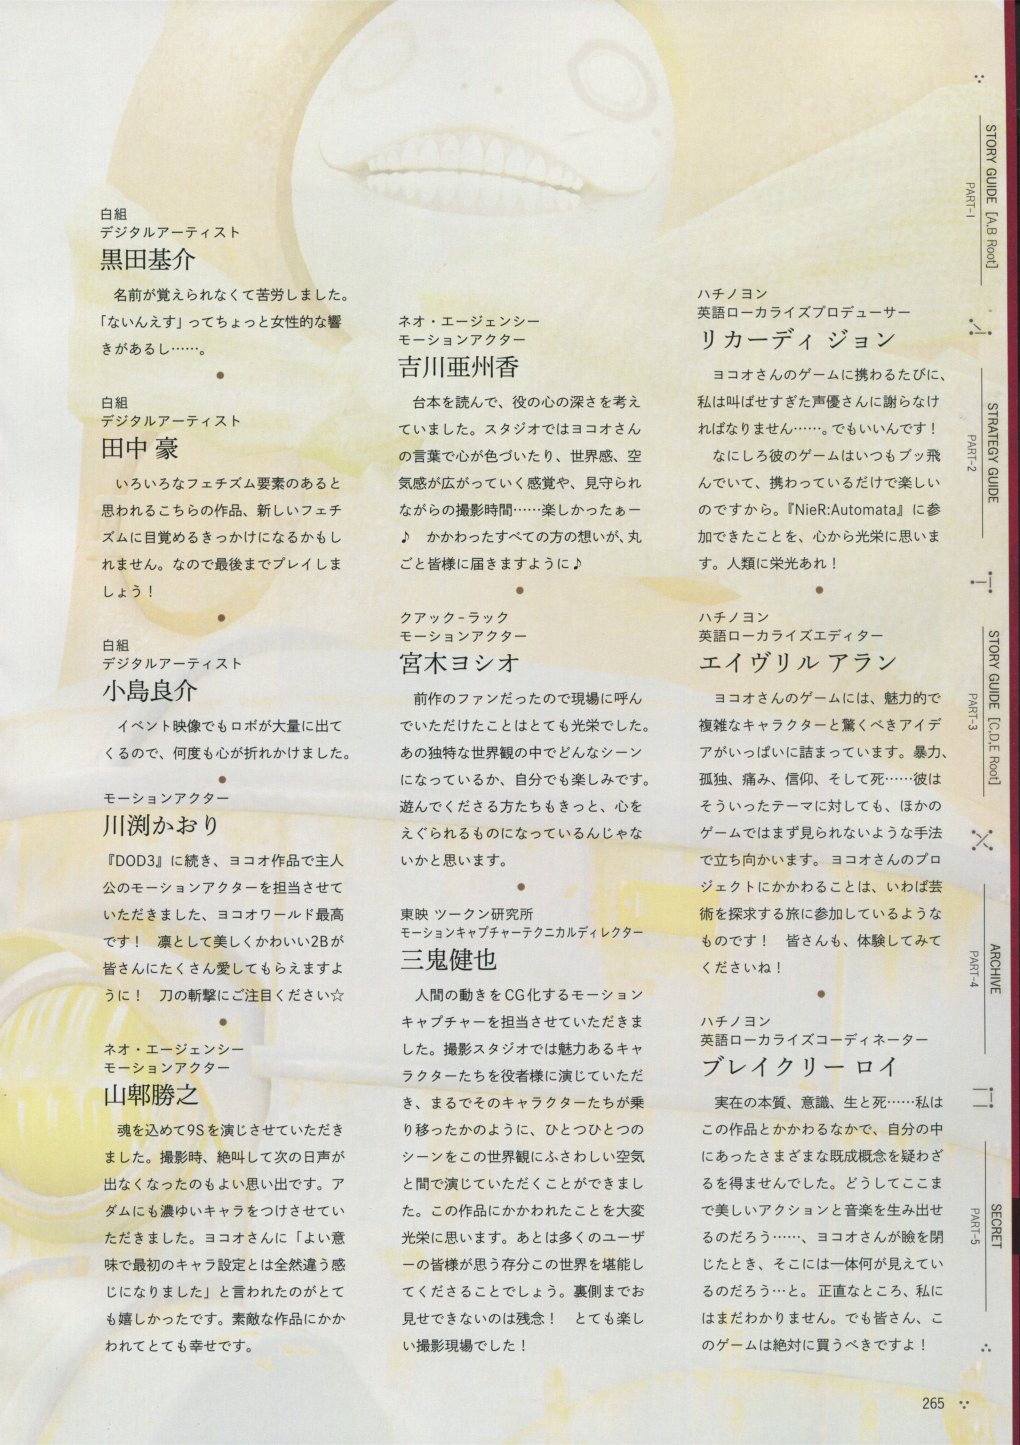 白組
デジタルアーティスト
黒田基介
名前が覚えられなくて苦労しました。
「ないんえす」ってちょっと女性的な響
きがあるし……。
●
白組
デジタルアーティスト
田中 豪
いろいろなフェチズム要素のあると
思われるこちらの作品、新しいフェチ
ズムに目覚めるきっかけになるかもし
れません。なので最後までプレイしま
しょう！
●
白組
デジタルアーティスト
小島良介
イベント映像でもロボが大量に出て
くるので、何度も心が折れかけました。
●
モーションアクター
川渕かおり
『DOD3』に続き、ヨコオ作品で主人
公のモーションアクターを担当させて
いただきました、ヨコオワールド最高
です！　凛として美しくかわいい2Bが
皆さんにたくさん愛してもらえますよ
うに！　刀の斬撃にご注目ください☆
●
ネオ・エージェンシー
モーションアクター
山鄲勝之
魂を込めて9Sを演じさせていただき
ました。撮影時、絶叫して次の日声が
出なくなったのもよい思い出です。ア
ダムにも濃ゆいキャラをつけさせてい
ただきました。ヨコオさんに「よい意
味で最初のキャラ設定とは全然違う感
じになりました」と言われたのがとて
も嬉しかったです。素敵な作品にかか
われてとても幸せです。
ネオ・エージェンシー
モーションアクター
吉川亜州香
台本を読んで、役の心の深さを考え
ていました。スタジオではヨコオさん
の言葉で心が色づいたり、世界感、空
気感が広がっていく感覚や、見守られ
ながらの撮影時間……楽しかったぁー
♪　かかわったすべての方の想いが、丸
ごと皆様に届きますように♪
●
クアック-ラック
モーションアクター
宮木ヨシオ
前作のファンだったので現場に呼ん
でいただけたことはとても光栄でした。
あの独特な世界観の中でどんなシーン
になっているか、自分でも楽しみです。
遊んでくださる方たちもきっと、心を
えぐられるものになっているんじゃな
いかと思います。
●
東映 ツークン研究所
モーションキャプチャーテクニカルディレクター
三鬼健也
人間の動きをCG化するモーション
キャプチャーを担当させていただきま
した。撮影スタジオでは魅力あるキャ
ラクターたちを役者様に演じていただ
き、まるでそのキャラクターたちが乗
り移ったかのように、ひとつひとつの
シーンをこの世界観にふさわしい空気
と間で演じていただくことができまし
た。この作品にかかわれたことを大変
光栄に思います。あとは多くのユーザ
ーの皆様が思う存分この世界を堪能し
てくださることでしょう。裏側までお
見せできないのは残念！　とても楽し
い撮影現場でした！
ハチノヨン
英語ローカライズプロデューサー
リカーディ ジョン
ヨコオさんのゲームに携わるたびに、
私は叫ばせすぎた声優さんに謝らなけ
ればなりません……。でもいいんです！
なにしろ彼のゲームはいつもブッ飛
んでいて、携わっているだけで楽しい
のですから。『NieR:Automata』に参
加できたことを、心から光栄に思いま
す。人類に栄光あれ！
●
ハチノヨン
英語ローカライズエディター
エイヴリル アラン
ヨコオさんのゲームには、魅力的で
複雑なキャラクターと驚くべきアイデ
アがいっぱいに詰まっています。暴力、
孤独、痛み、信仰、そして死……彼は
そういったテーマに対しても、ほかの
ゲームではまず見られないような手法
で立ち向かいます。ヨコオさんのプロ
ジェクトにかかわることは、いわば芸
術を探求する旅に参加しているような
ものです！　皆さんも、体験してみて
くださいね！
●
ハチノヨン
英語ローカライズコーディネーター
ブレイクリー ロイ
実在の本質、意識、生と死……私は
この作品とかかわるなかで、自分の中
にあったさまざまな既成概念を疑わざ
るを得ませんでした。どうしてここま
で美しいアクションと音楽を生み出せ
るのだろう……、ヨコオさんが瞼を閉
じたとき、そこには一体何が見えてい
るのだろう…と。正直なところ、私に
はまだわかりません。でも皆さん、こ
のゲームは絶対に買うべきですよ！
STORY GUIDE [A,B Root]
PART-1
STRATEGY GUIDE
PART-2
STORY GUIDE [C,D,E Root]
PART-3
ARCHIVE
PART-4
SECRET
PART-5
265